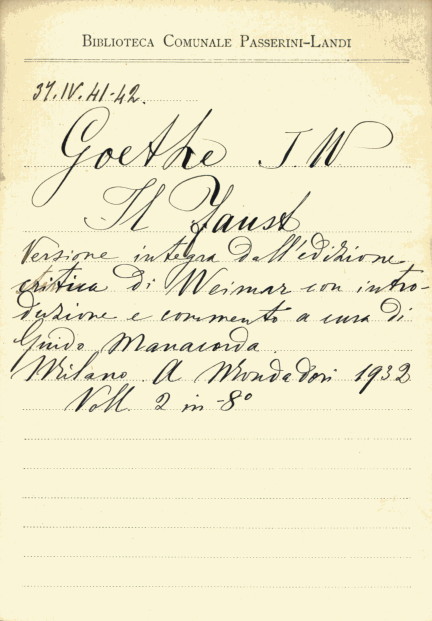 Biblioteca Comunale Passerini-Landi
37.IV.41-42.
Goethe J. W
Il Faust
Versione integra dall'edizione
critica di Weimar con intro-
duzione e commento a cura di
Guido Manacorda.
Milano A Mondadori 1932
Voll. 2 in -8°